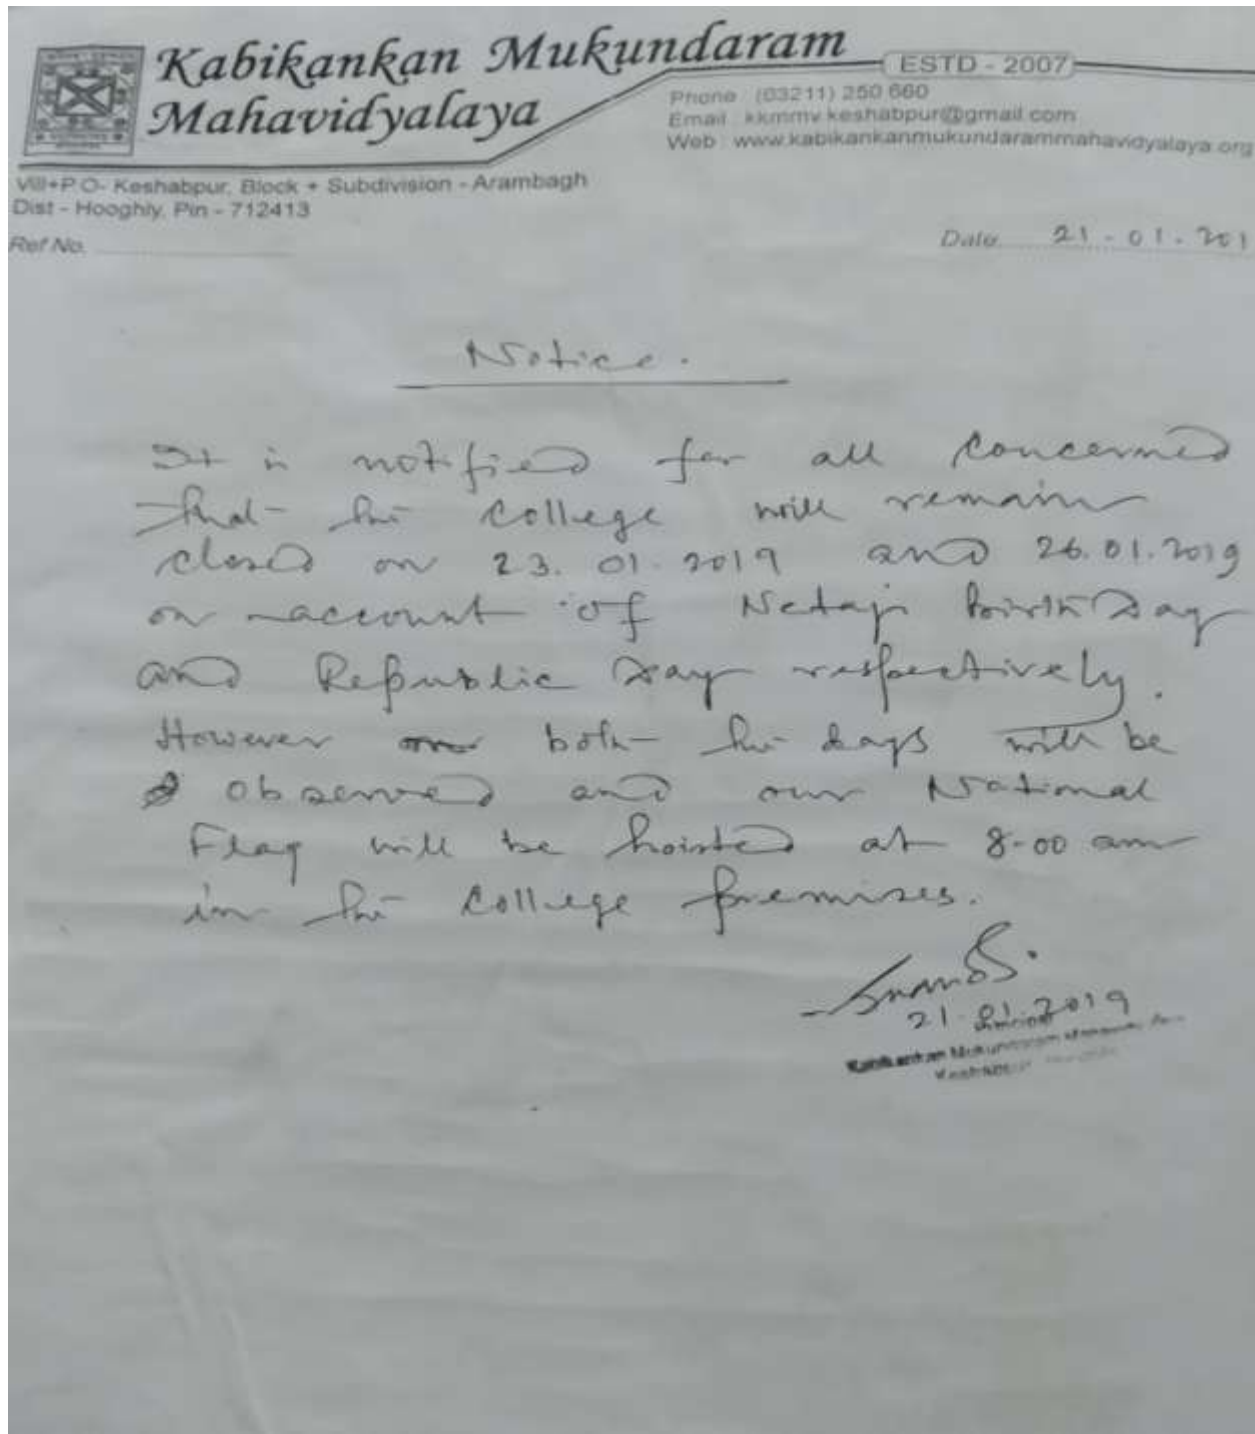 Kabikankan Mukundaram
Mahavidyalaya
ESTD - 2007
Phone : (03211) 250 660
Email : kkmmv.keshabpur@gmail.com
Web : www.kabikankanmukundarammahavidyalaya.org
Vill+P.O- Keshabpur, Block + Subdivision - Arambagh
Dist - Hooghly, Pin - 712413
Ref No.
Date 21-01-201
Notice.
It is notified for all concerned
that the college will remain
closed on 23.01.2019 and 26.01.2019
on account of Netaji birth Day
and Republic Day respectively.
However both the days will be
observed and our National
Flag will be hoisted at 8-00 am
in the college premises.
21.01.2019
Principal
Kabikankan Mukundaram
Keshabpur